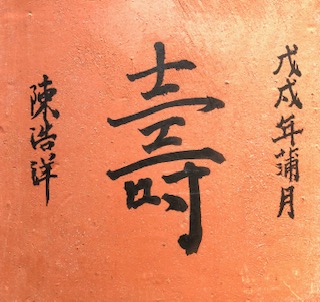 戊戌年蒲月
壽
陳浩洋